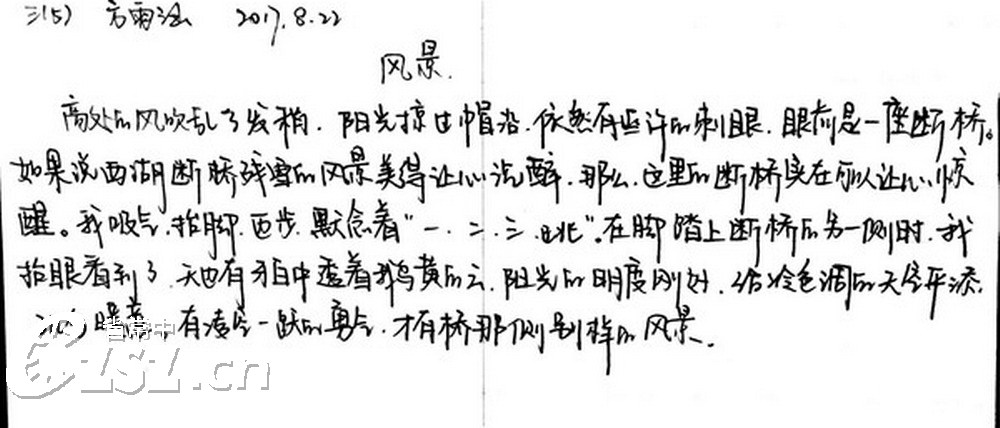 三(5) 方雨涵 2017.8.22
风景.
高处的风吹乱了发梢.阳光掠过帽沿.依然有些许的刺眼.眼前是一座断桥。
如果说西湖断桥残雪的风景美得让心沉醉.那么.这里的断桥实在可以让心惊
醒。我吸气.抬脚.迈步.默念着"一.二.三.跳"。在脚踏上断桥的另一侧时.我
抬眼看到了.天边有牙白中透着鹅黄的云.阳光的明度刚好.给冷色调的天空平添
暖意.有凌空一跃的勇气.才有桥那侧别样的风景.
ZSZ.cn